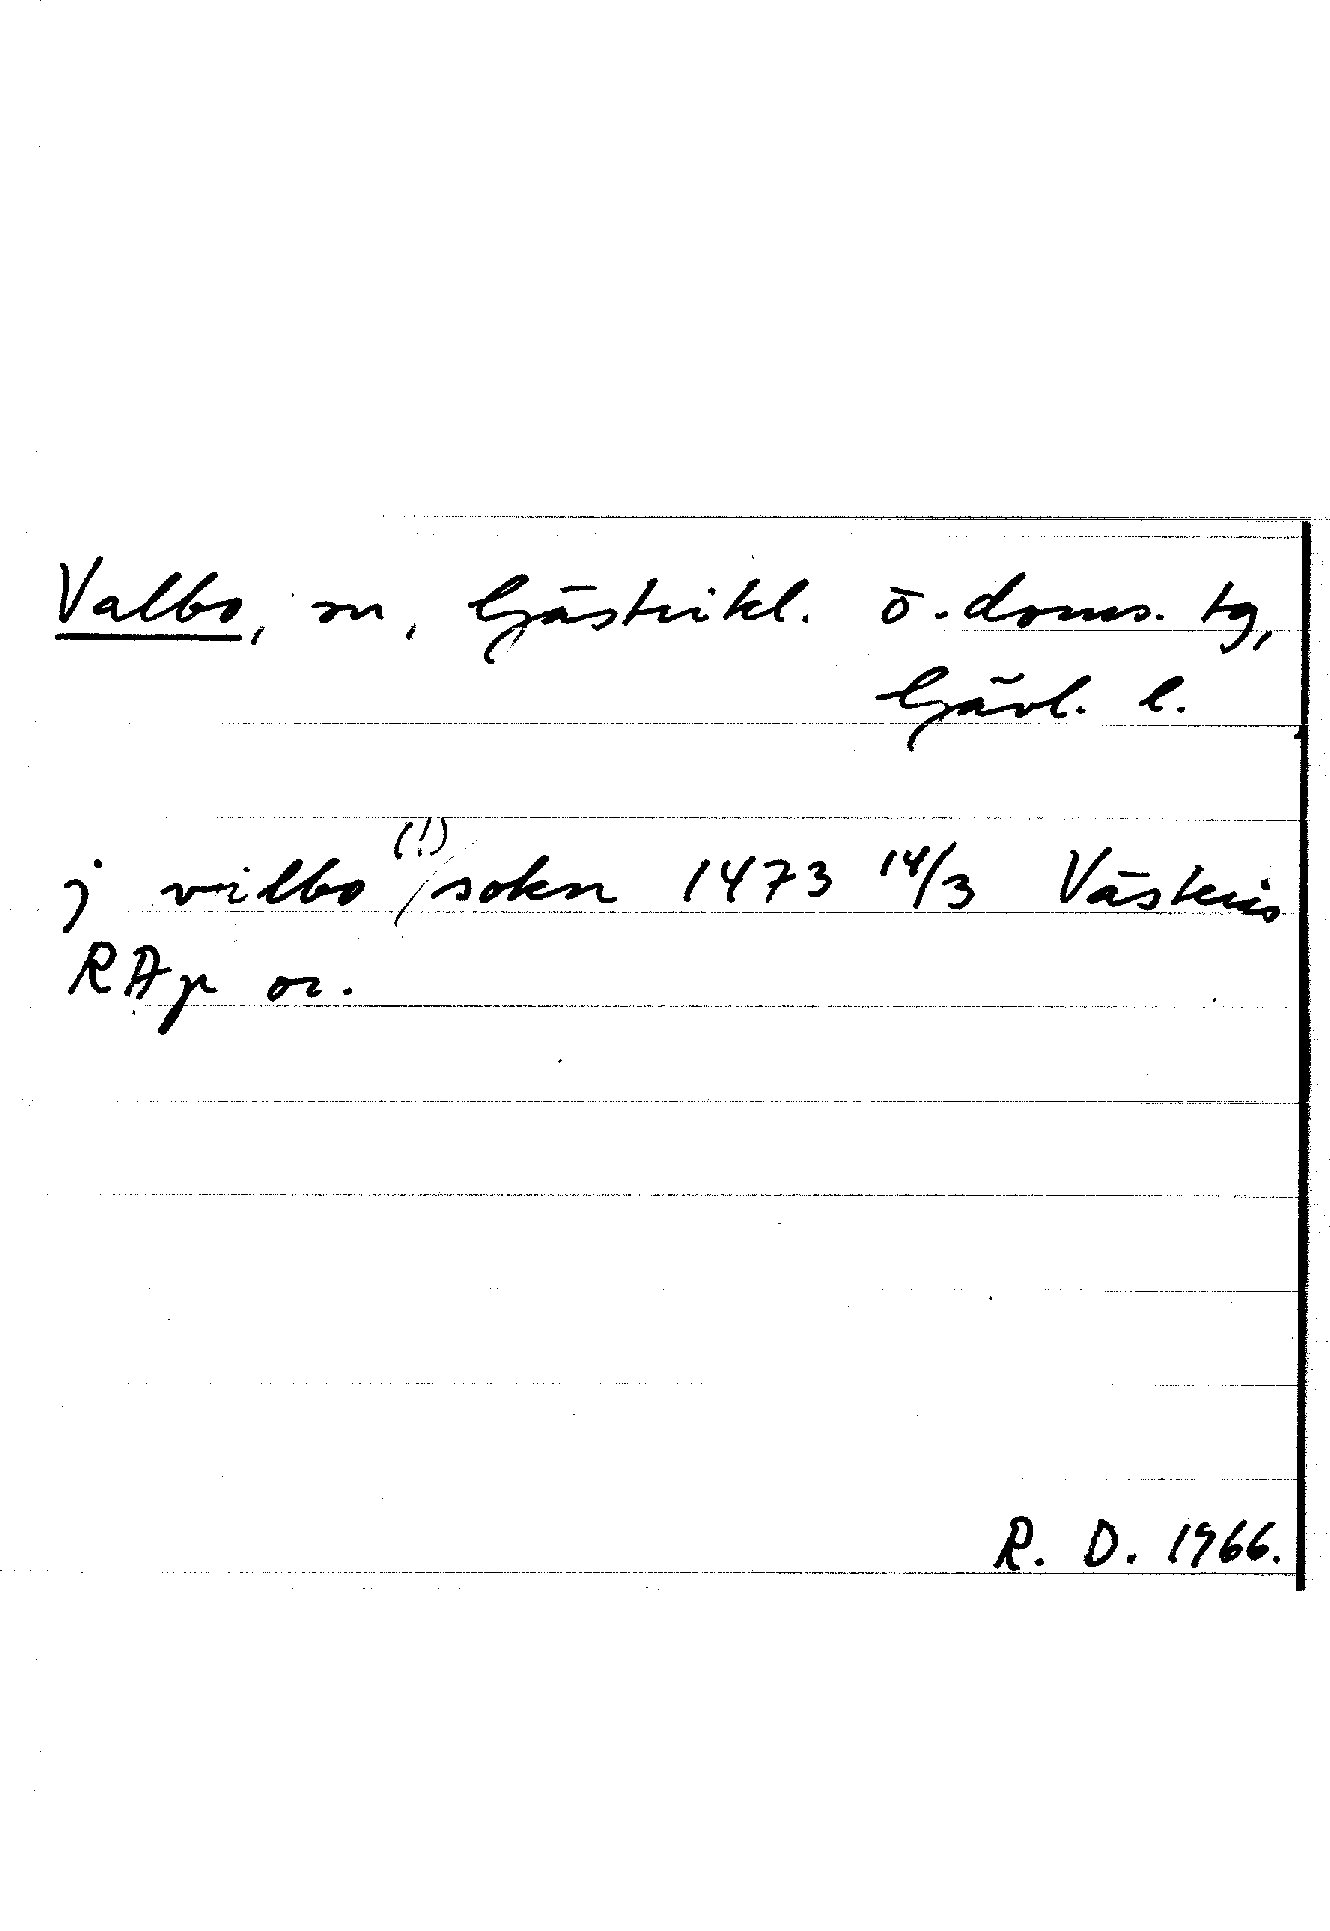 Valbo, sn, Gästrikl. ö. doms. tg,
Gävl. l.
j vilbo (!) / sokn 1473 14/3 Västerås
RAp or.
R. D. 1966.